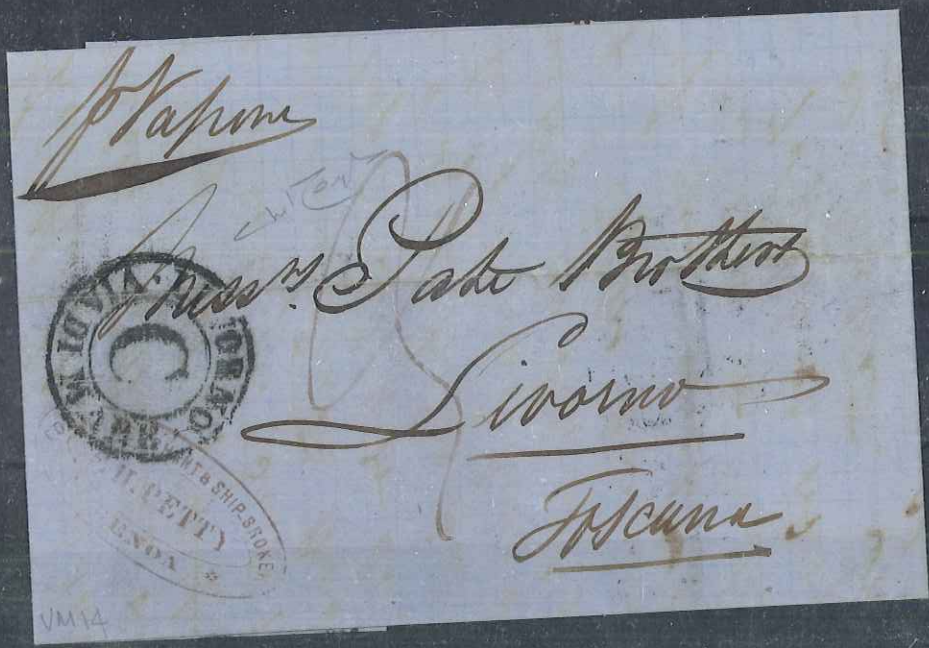 p Vapore
Mess.rs Pate Brothers
Livorno
Toscana
VIA DI MARE
LIVORNO
C
& SHIP-BROKER
H. PETTY
VM14